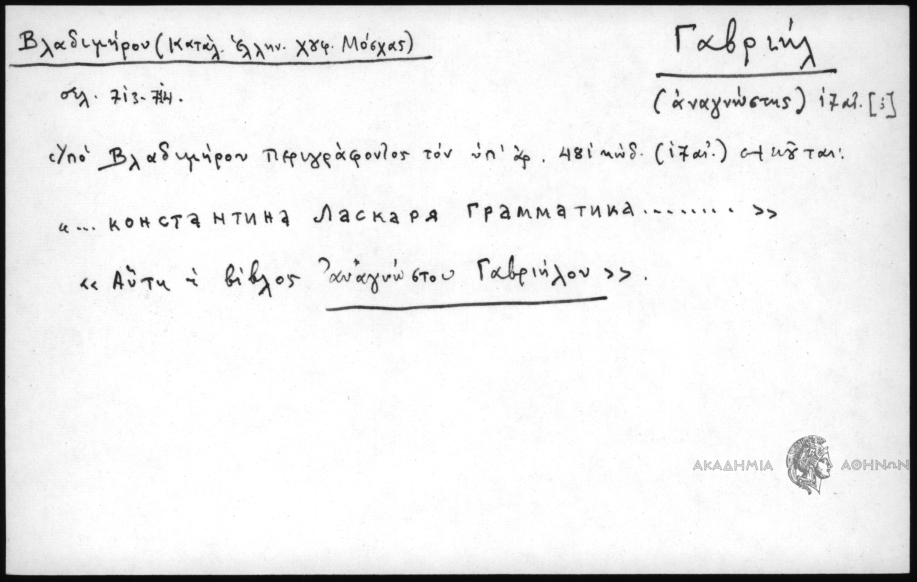 Βλαδιμήρου (Κατάλ. ἑλλην. χγφ. Μόσχας)
Γαβριήλ
σελ. 713-714.
(ἀναγνώστης) 17 αἰ. [3]
Ὑπό Βλαδιμήρου περιγράφοντος τόν ὑπ' ἀρ. 481 κώδ. (17 αἰ.)
«... КОНСТАНТИНА ЛАСКАРЯ ГРАММАТИКА ........ »
«Αὕτη ἡ βίβλος ἀναγνώστου Γαβριήλου».
ΑΚΑΔΗΜΙΑ ΑΘΗΝΩΝ